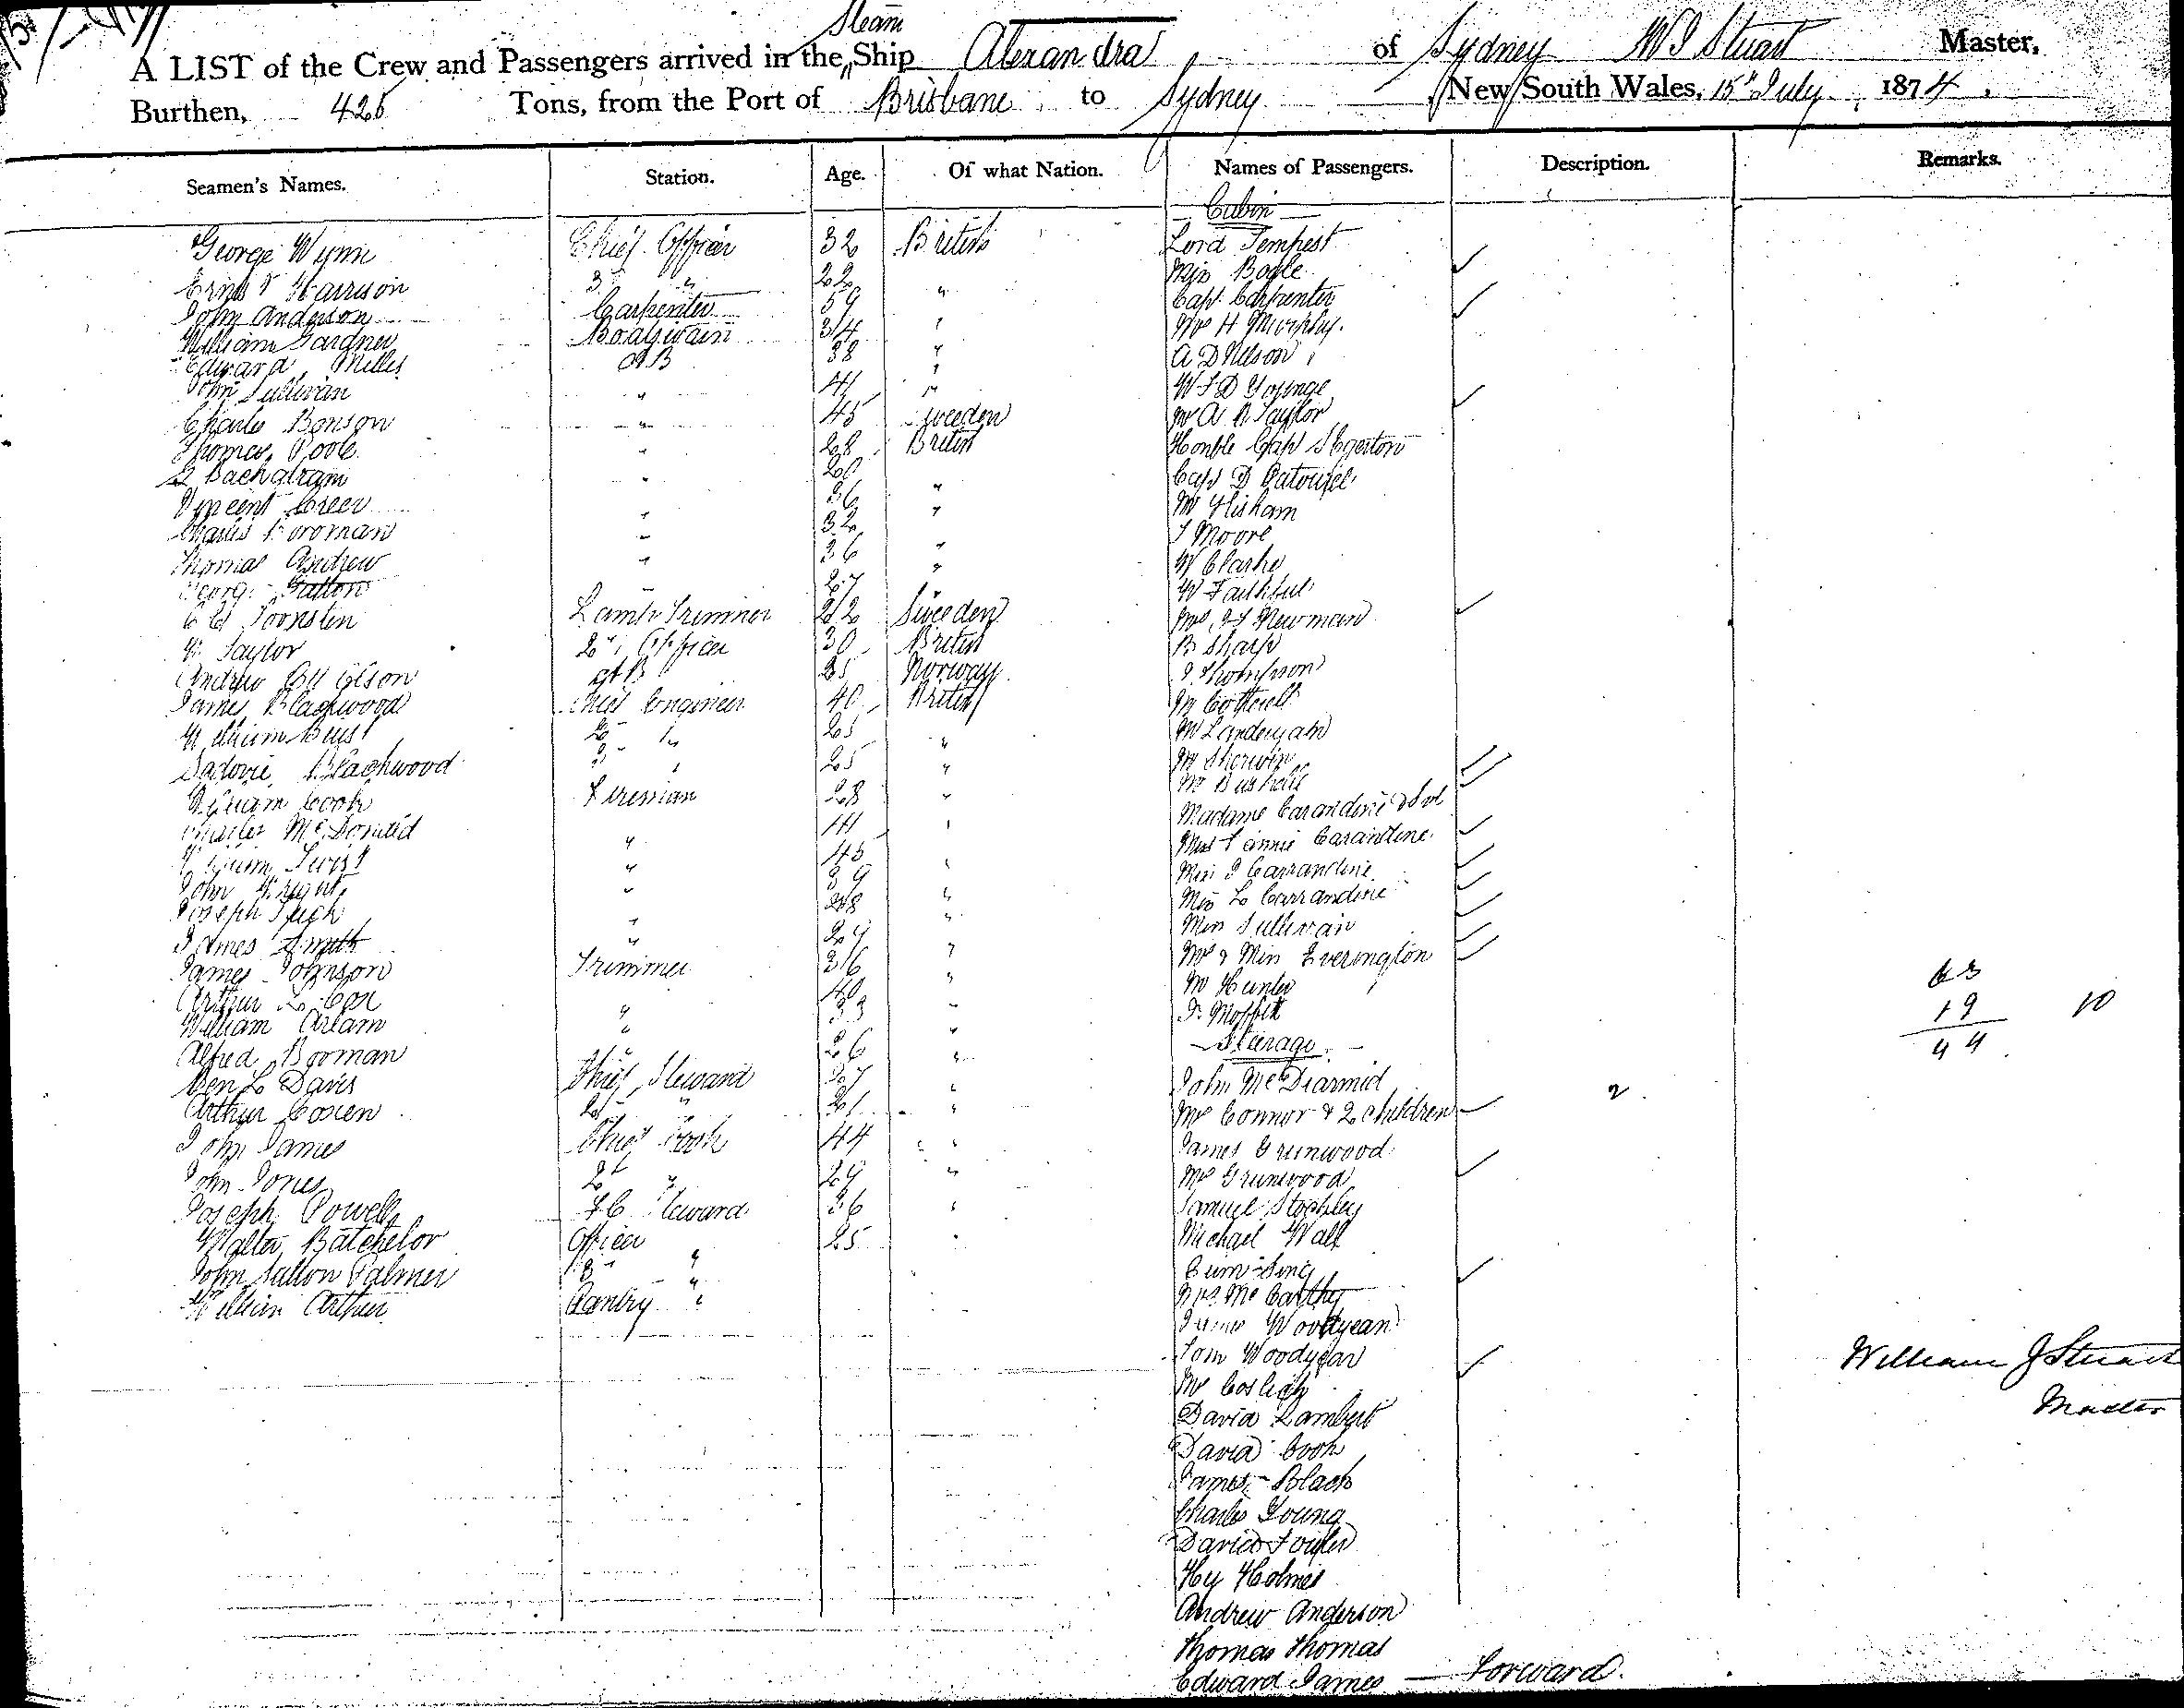 Steam
A LIST of the Crew and Passengers arrived in the Ship Alexandra of Sydney W J Stuart Master,
Burthen, 425 Tons, from the Port of Brisbane to Sydney New South Wales, 15th July 1874
Seamen's Names. Station. Age. Of what Nation. Names of Passengers. Description. Remarks.
Cabin
George Wynn Chief Officer 32 British Lord Tempest
Ernest Harrison 3 " 22 " Miss Bogle
John Anderson Carpenter 59 " Capt. Carpenter
William Gardner Boatswain 34 " Mr H Murphy.
Edward Milles AB 38 " A D Nelson
John Sullivan " 41 " W F D
Charles Bonson " 45 Sweeden Mr A R Taylor
Thomas Poole " 28 British Honble Capt S Egerton
Bachatram " 20 " Capt D
Vincent Creer " 36 " Mr Hisham
Charles Boroman " 32 " J Moore
Thomas Andrew " 36 " W Clarke
George Gatton " 27 " W Faithful
Toonsten Lamp Trimmer 22 Sweeden Mrs Newman
Taylor 2nd Officer 30 British B Sharp
Andrew Olson AB 25 Norway J Thompson
James Blackwood Chief Engineer 40 British Mr Cotterell
William Beust 2 " 25 " Mr Landeyam
Blackwood 3 " 25 " Mr Sherwin
William Cook Fireman 28 " Mr Bushell
Charles McDonald " 41 " Madame Carandini &
" 45 " Miss Fannie Carandine
John Wright " 39 " Miss I Carrandine
Joseph Pugh " 28 " Miss L Carrandine
James Smyth " 29 " Miss Sullivan
James Johnson Trimmer 36 " Mr & Miss Everington
Arthur L Cox " 40 " Mr Hunter
William Arlam " 33 " F. Moffitt
Alfred Booman " 26 " Steerage
Ben L Davis Chief Steward 27 " John McDiarmid
Arthur Cosien 2 " 21 " Mrs Connor & 2 Children 2
John James Chief Cook 44 " James Grunwood
John Jones 2d " 29 " Mrs Grunwood
Joseph Powell F C Steward 36 " Samuel Stockley
Walter Batchelor Officer " 25 " Michael Wall
John Sutton Palmer 3 " Bum Sing
William Arthur Pantry " Mrs McCarthy
James Woodyean
Tom Woodyear
Mr
David Lambert
David Cook
James Black
Charles Young
David Fowler
Hy Holmes
Andrew Anderson
Thomas Thomas
Edward James — Forward.
63
19 10
44
William J Stuart
Master